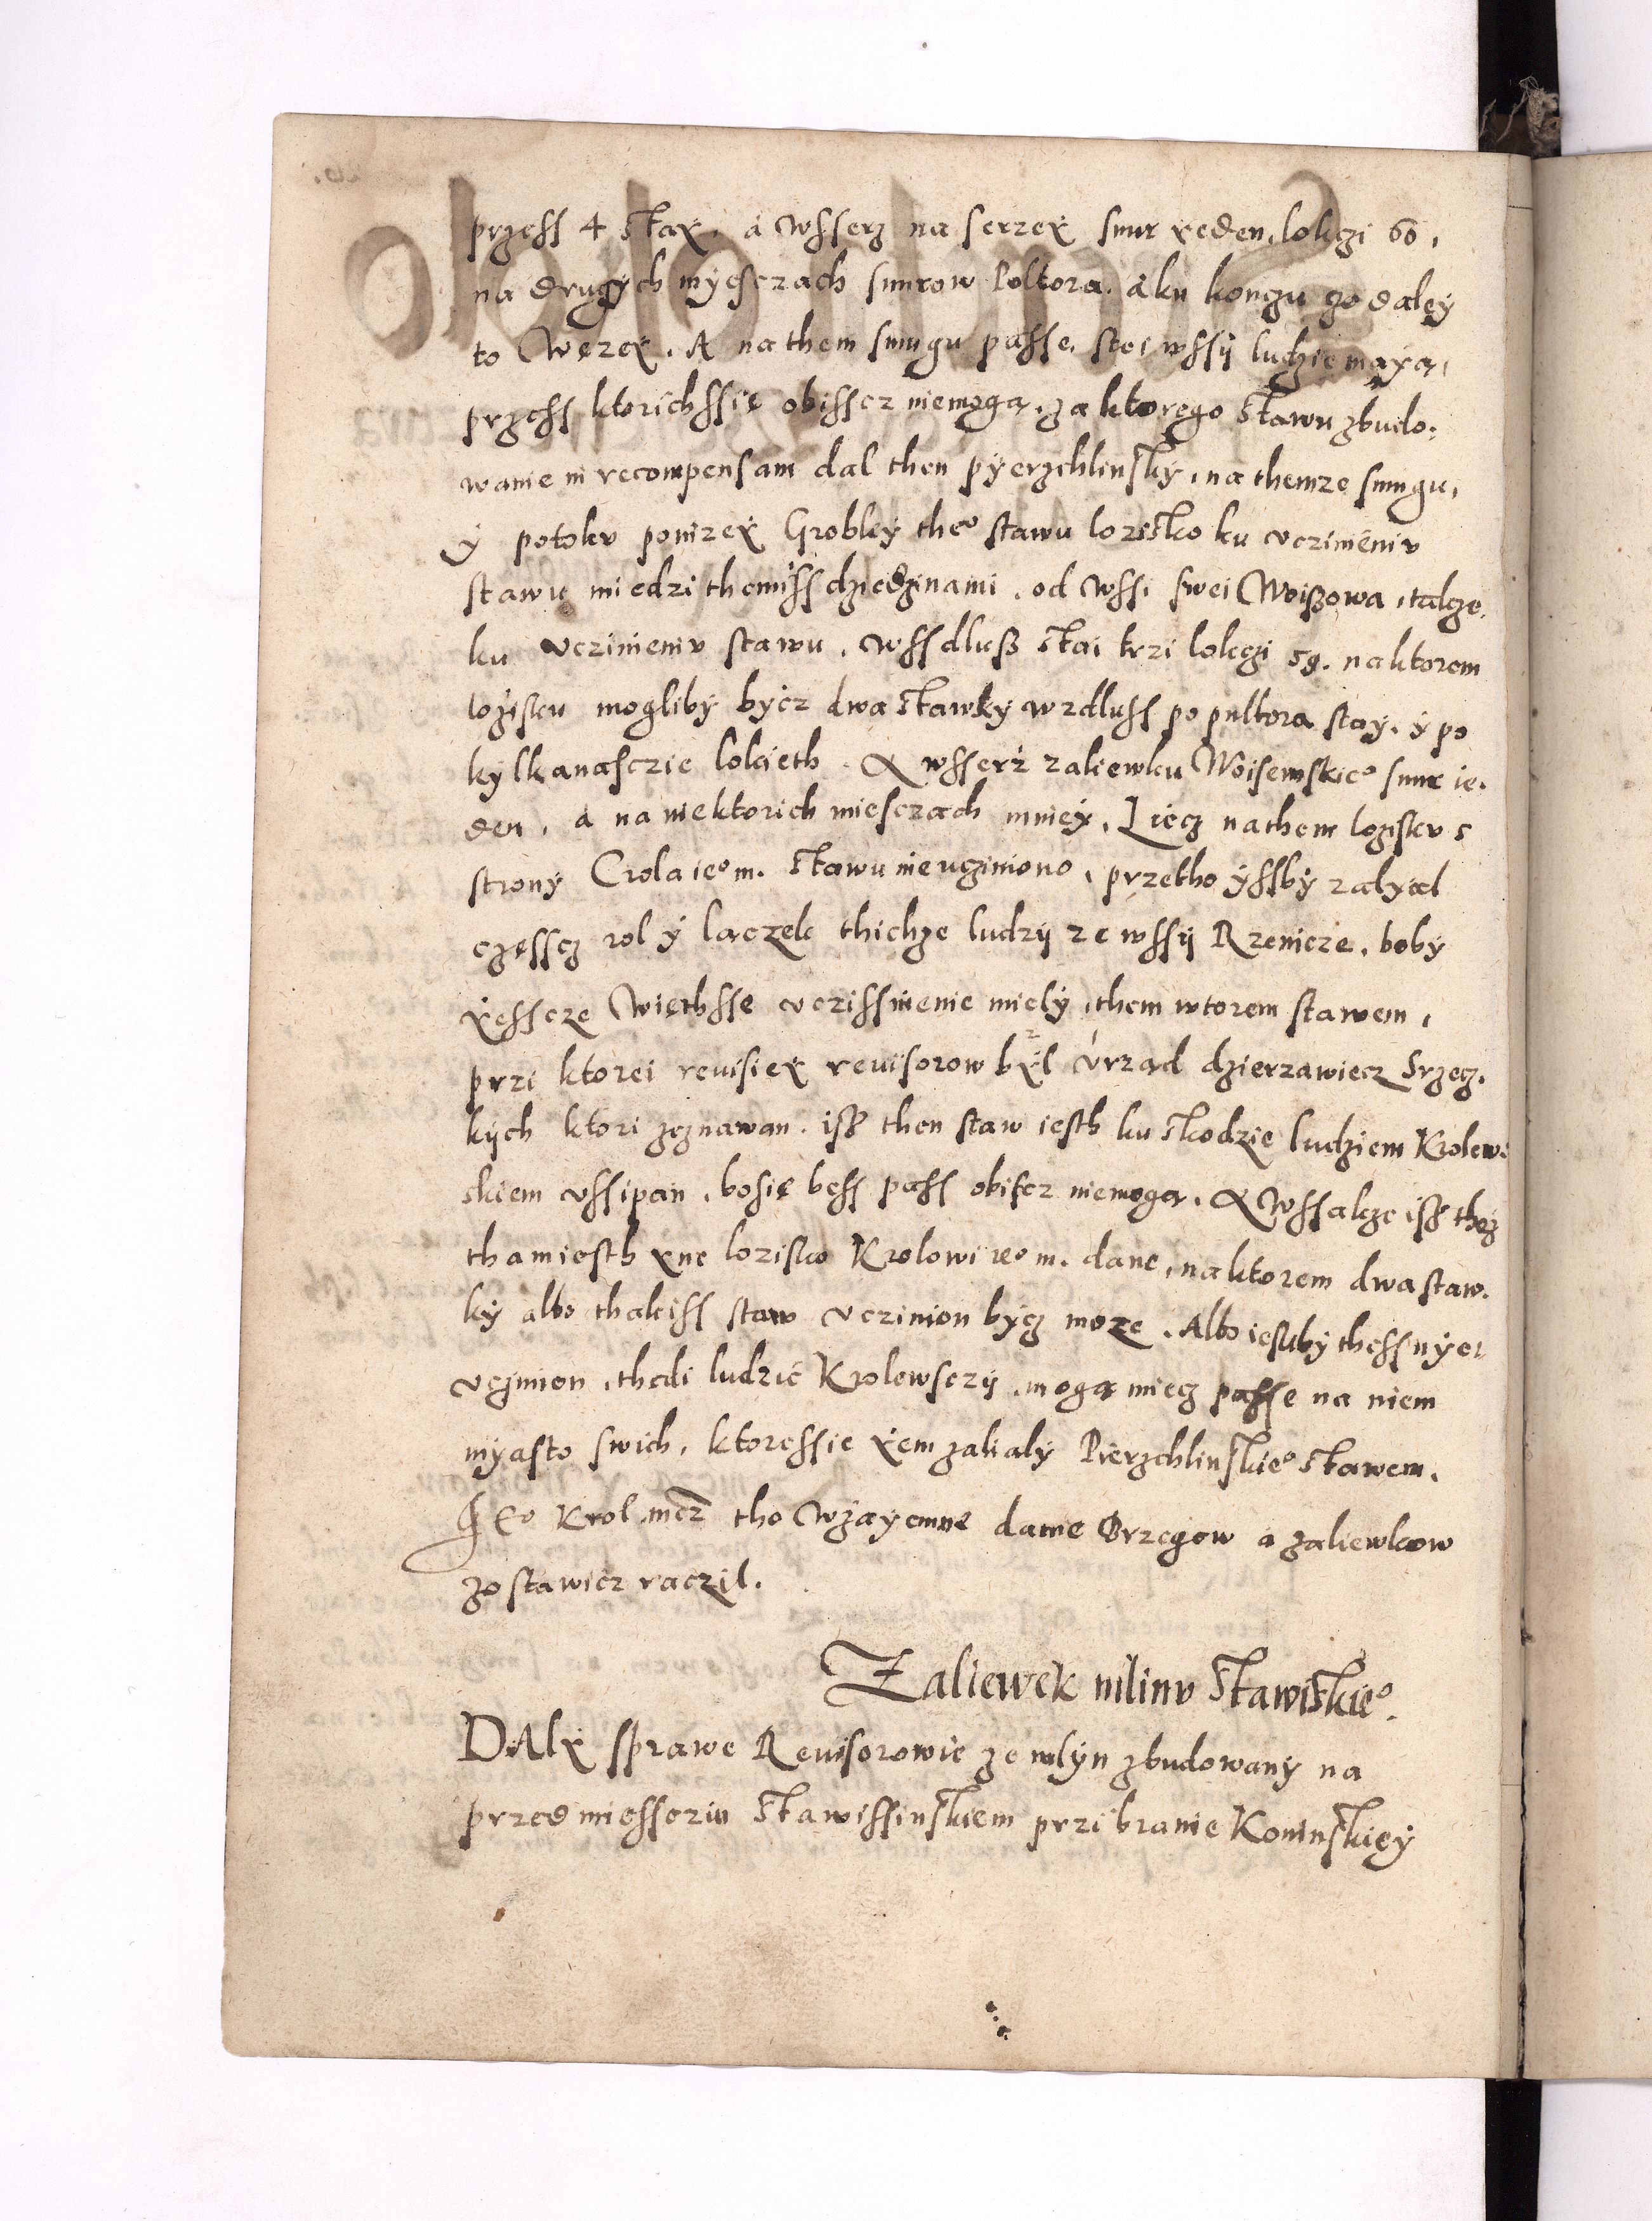 przess 4 stax, a wsserz na serzex snur xeden, lokczi 60,
na drugych myesczach snurow Poltora. a ku konczu zo daley
to Węzex. A na them smugu passe, stei wssij ludzie maya,
przess ktorich ssię obisscz niemoga, za ktorego stawu zbudo:
wanie in recompensam dal then pyerzchlinsky, na themze smugu,
Y potoku ponizex Grobley the° stawu lozisko ku vczinieniu
stawu miedzi themiss dziedzinami, od wssi swei Woiszowa, takze
ku vczinieniv stawu, wssdlusz stai trzi lokczi 59. na ktorem
lozisku mogliby bycz dwa stawky wzdluss po pultora stay, y po
kylkanasczie lokieth. A wsserz zaliewku Woisewskie° snur ie.
den, a na niektorich miesczach mniey, Liecz na them lozisku s
strony Crola ie° m. stawu nie ucziniono, przetho yssby zalyal
częsscz rol y laczek thichze ludzij ze wssij Rzenicze, boby
xesscze więthsse vczissnienie miely, them wtorem stawem,
przi ktorei reuisiex reuisorow bxl vrzad dzierzawiecz Srzecz.
kych ktori zeznawan. isz then staw iesth ku skodzie ludziem Krolew:
skiem vssipan, bosię bess pass obiscz niemoga. A wssakze isz thez
tham iesth xne lozisko Krolowi ie° m. dane, na ktorem dwa staw.
ky albo thakiss staw vczinion bycz moze. Albo iesliby thess nye
vczinion, thedi ludzie Krolewsczij, moga miecz passe na niem
myasto swich, ktoressie xem zalialy Pierzchlinskie° stawem.
Ie° Krol. mcz tho wzayemne danie Brzegow a zaliewkow
zostawicz raczil.
Zaliewek mlinv Stawiskie°.
DAlx sprawe Reuisorowie ze mlyn zbudowany na
przedmiesscziu Stawissinskiem przi branie Koninskiey